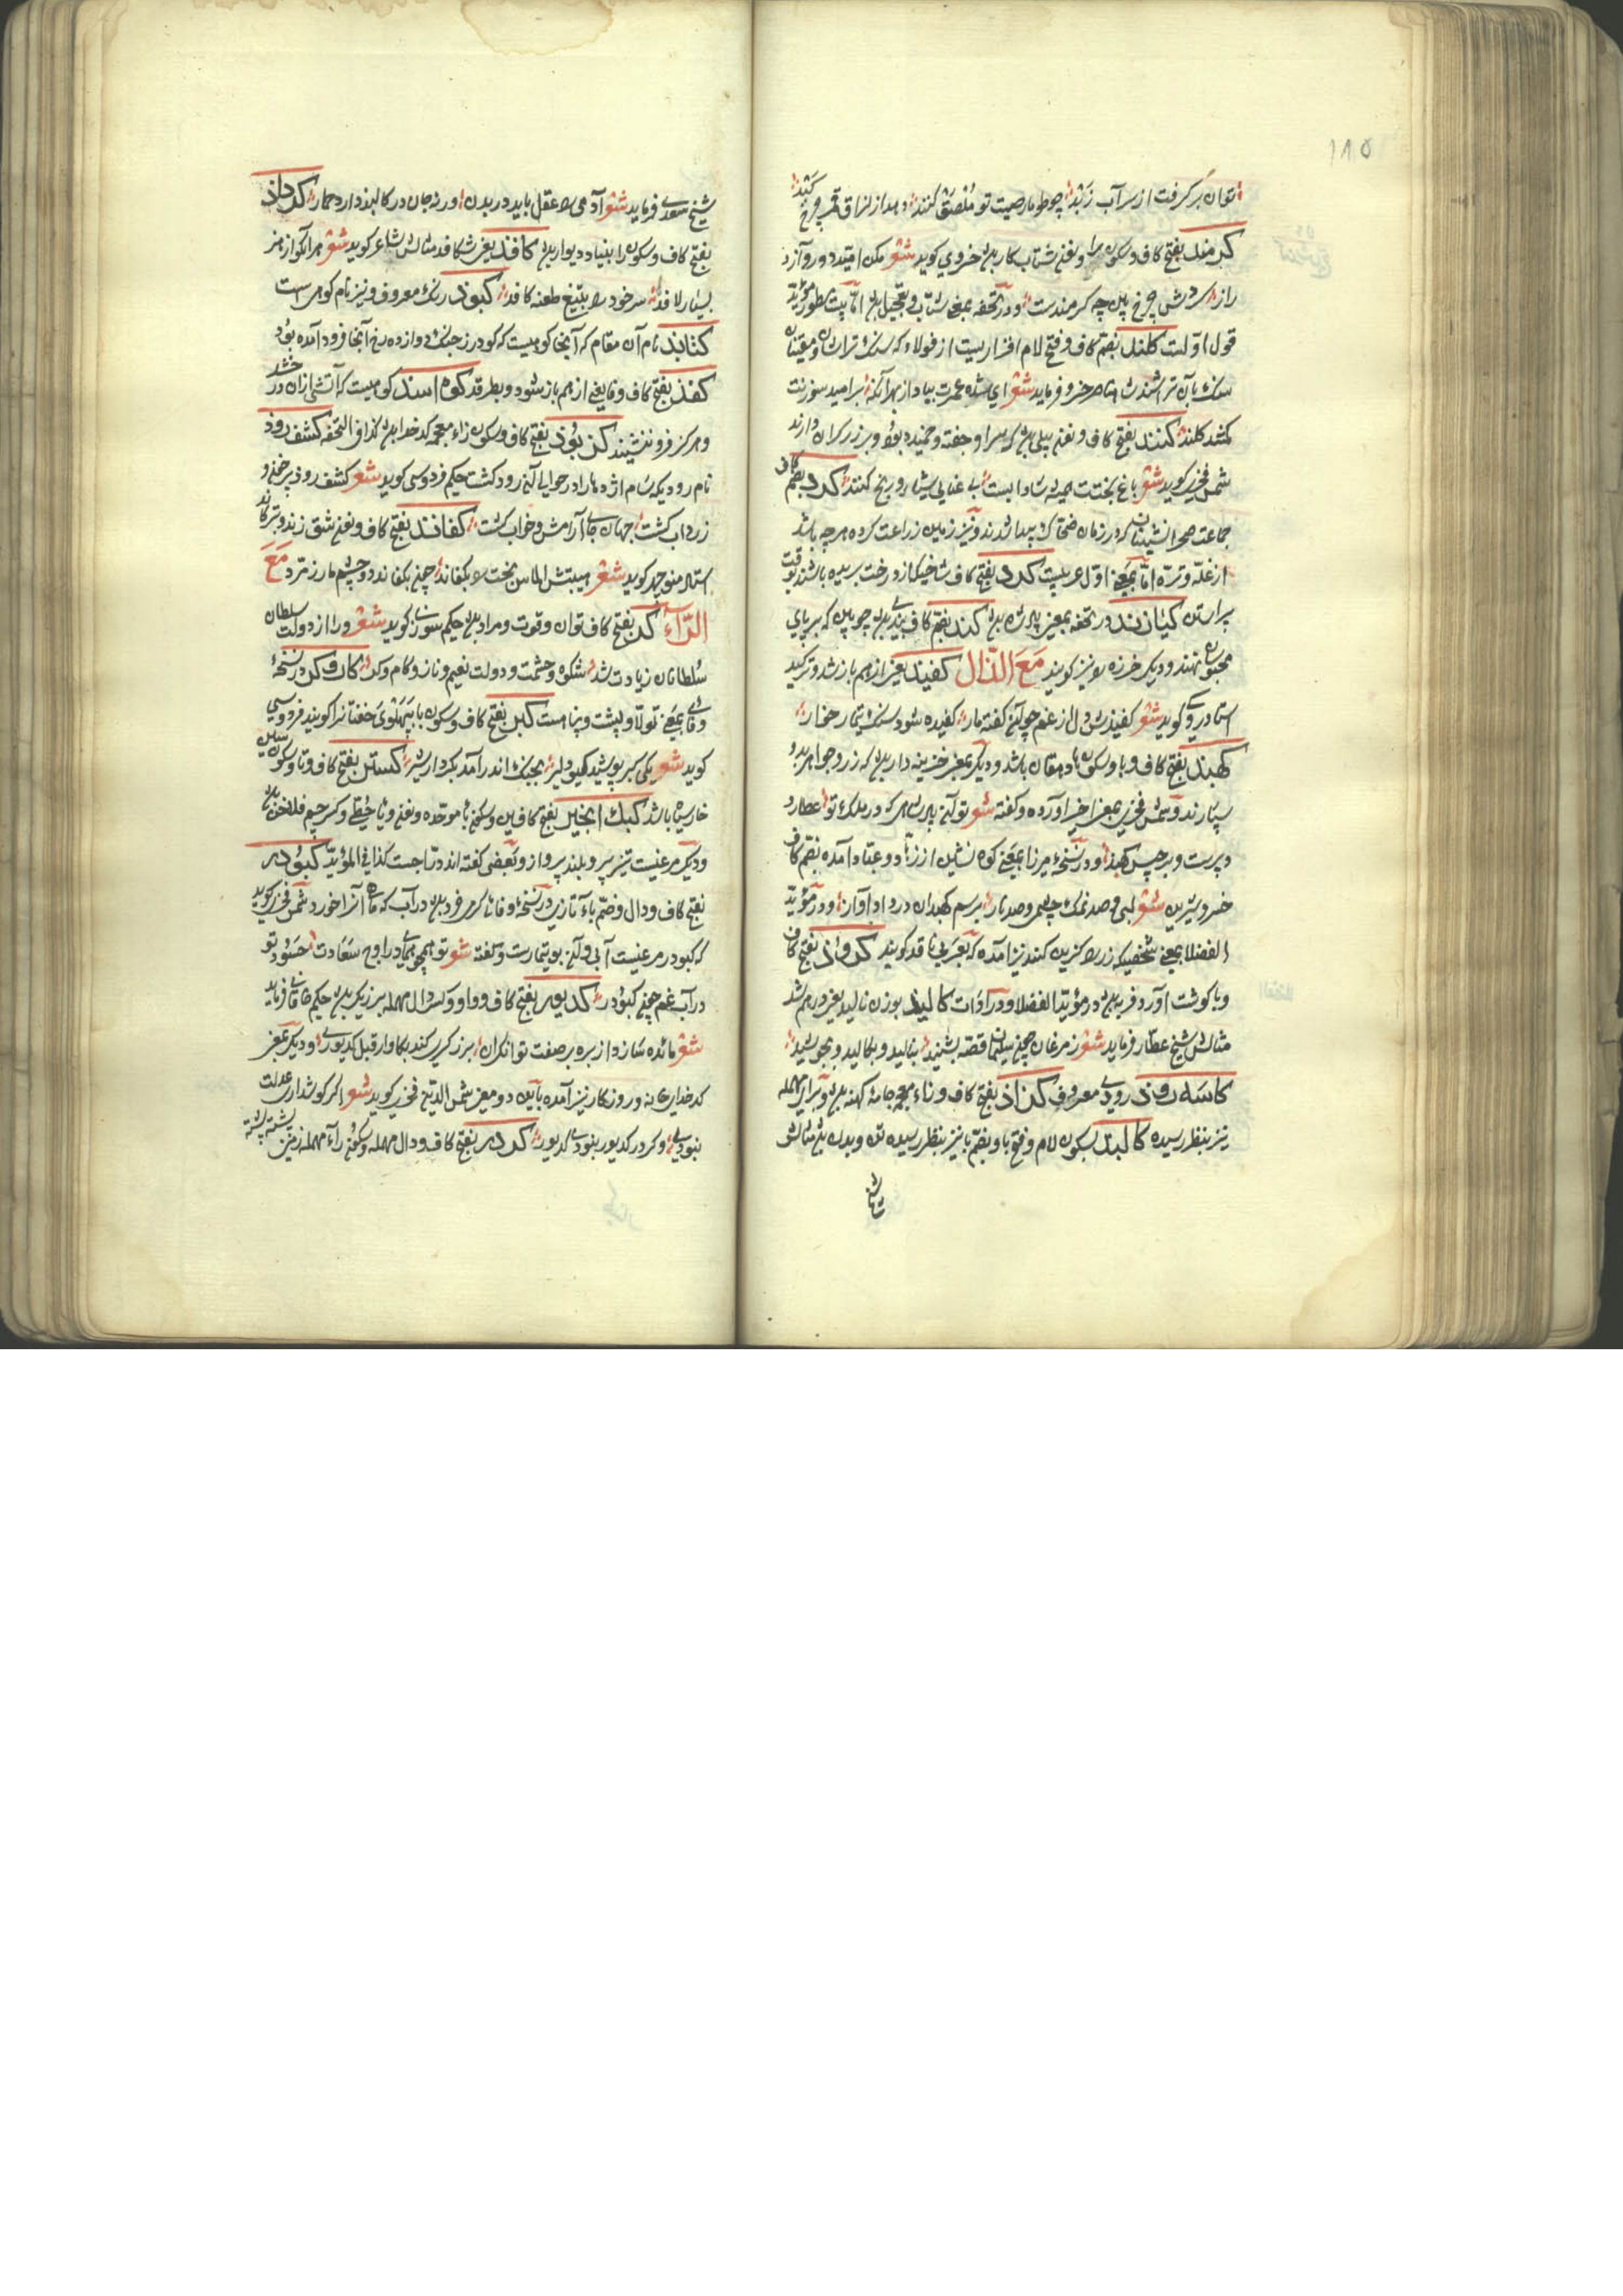 ۱۱۵
توان برگرفت از سر آب زبد چو طومار صیت تو ملصق کنند دهد از
کرمند بفتح کاف و سکون را و نغنغ شتاب کار بود خسروی گوید شعر مکن امید دور و آز
راز گردش چرخ بین چه کرمندست و در تحفه بمعنی شتاب و تعجیل بود اما بیت بطور مؤید
قول اولست کلند بضم کاف و فتح لام افزاریست از فولاد که سنگ تراشان و مقنیان
سنگ بآن تراشند ناصر خسرو فرماید شعر ای شده عمرت بباد از بهر آنک بر امید سوزنت
کمشد کلند کنند بفتح کاف و نغنغ بیلی بود که سر او جفته و خمیده بود و برزگران دارند
شمس فخری گوید شعر باغ بختت همیشه شادابست بی عنای بیل و رنج کنند کرد بضم کاف
جماعت صحرانشینان که در زمان ضحاک پیدا شدند و نیز زمین زراعت کرده هر چه باشد
از غله و تره اما بمعنی اول عربیست کرد بفتح کاف شاخیکه از درخت بریده باشند بوقت
پیراستن کیازند در تحفه بمعنی پادشاه بود کند بفتح کاف بندی بود چوبین که بر پای
محبوسان نهند و دیگر خرزه را نیز گویند مع الذال کفیذ یعنی از هم باز شد و ترکید
استاد رودکی گوید شعر کفیذش دل از غم چو آن کفته نار کفیده شود سنگ تیمار خوار
کهبذ بفتح کاف و با و سکون ها دهقان باشد و دیگر بمعنی خزینه دار بود که زر و جواهر بدو
سپارند و شمس فخری بمعنی اخیر آورده و گفته شعر تو آن پادشاهی که در ملک تو عطارد
دبیرست و برجیس کهبذ و در نسخه میرزا بمعنی کوه نشین از زهاد و عباد آمده بضم کاف
خسرو شیرین شعر لبی و صد نمک چشمی و صد ناز برسم کهبدان در داد آواز و در مؤید
الفضلا بمعنی شخصیکه زر را گزین کند نیز آمده که بعربی ناقد گویند کرواذ بفتح کاف
و با گوشت آورد فربه بود در مؤید الفضلا و در ادات کالیذ بوزن نالید یعنی درهم شد
مثالش شیخ عطار فرماید شعر ز مرغان چون سلیمان قصه بشنید بنالید و بکالید و بجوشید
کاسه روذ رودی معروف کزاذ بفتح کاف و زاء معجمه جامه کهنه بود و برای مهمله
نیز بنظر رسیده کالبذ بسکون لام و فتح با و بضم با نیز بنظر رسیده تن و بدن بود مثالش
شیخ
شیخ سعدی فرماید شعر آدمی را عقل باید در بدن ورنه جان در کالبد دارد حمار کرداذ
بفتح کاف و سکون را بنیاد دیوار بود کافذ یعنی شکافد مثالش شاعر گوید شعر هر آنکو از هنر
بسیار لافد سر خود را بتیغ طعنه کافد کبوذ رنگ معروف و نیز نام کوهیست
کنابذ نام آن مقام که آنجا کوهیست که گودرز جنگ دوازده رخ آنجا فرود آمده بود
کفذ بفتح کاف و فا یعنی از هم باز شود و بطرقد کوه اسند کوهیست که آتشی از آن در خشد
و هرگز فرو ننشیند کزبوذ بفتح کاف و سکون زاء معجمه کدخدا بود کذا فی التحفه کشف روذ
نام رودیکه سام اژدها را در حوالی آن رود کشت حکیم فردوسی گوید شعر کشف رود پرخون و
زرداب گشت جهان جای آرامش و خواب گشت کفاند بفتح کاف و نغنغ شق زند و ترکاند
استاد منوچهر گوید شعر هیبتش الماس سخت را بکفاند چون بکفاند دو چشم مار زمرد مع
الراء کر بفتح کاف توان و قوت و مراد بود حکیم سوزنی گوید شعر ورا از دولت سلطان
سلطانان زیادت شد شکوه و حشمت و دولت نعیم و ناز و کام و کر کاروکر در نسخه
وفائی بمعنی تولا و پشت و پناهست کبر بفتح کاف و سکون با بپهلوی خفتانرا گویند فردوسی
گوید شعر یکی کبر پوشید گیو دلیر بجنگ اندر آمد بکردار شیر کستر بفتح کاف و تا و سکون سین
خارسیاه باشد کبک انجیر بفتح کافین و سکون باء موحده و نغنغ
و دیگر مرغیست تیزپر و بلندپرواز و بعضی گفته اند دراجست کذا فی المؤید کبودر
بفتح کاف و دال و ضم باء تازی در نسخه وفائی کرمی خرد بود در آب که ماهی آنرا خورد شمس فخری گوید
که کبودر مرغیست آبی و آن بوتیمارست و گفته شعر تو همچو همای در اوج سعادت حسود تو
در آب غم چون کبودر کدیور بفتح کاف و واو و کسر دال مهمله برزیگر بود حکیم خاقانی فرماید
شعر مائده سازد از بره بر صفت توانگران برزگری کند بگاو از قبل کدیوری و دیگر بمعنی
کدخدای خانه و روزگار نیز آمده باین دو معنی شمس الدین فخری گوید شعر اگر گوشدار عدلت
نبودی و گر در کدیور نبودی کدیور کردر بفتح کاف و دال مهمله و سکون راء مهمله زمین پشته پشته